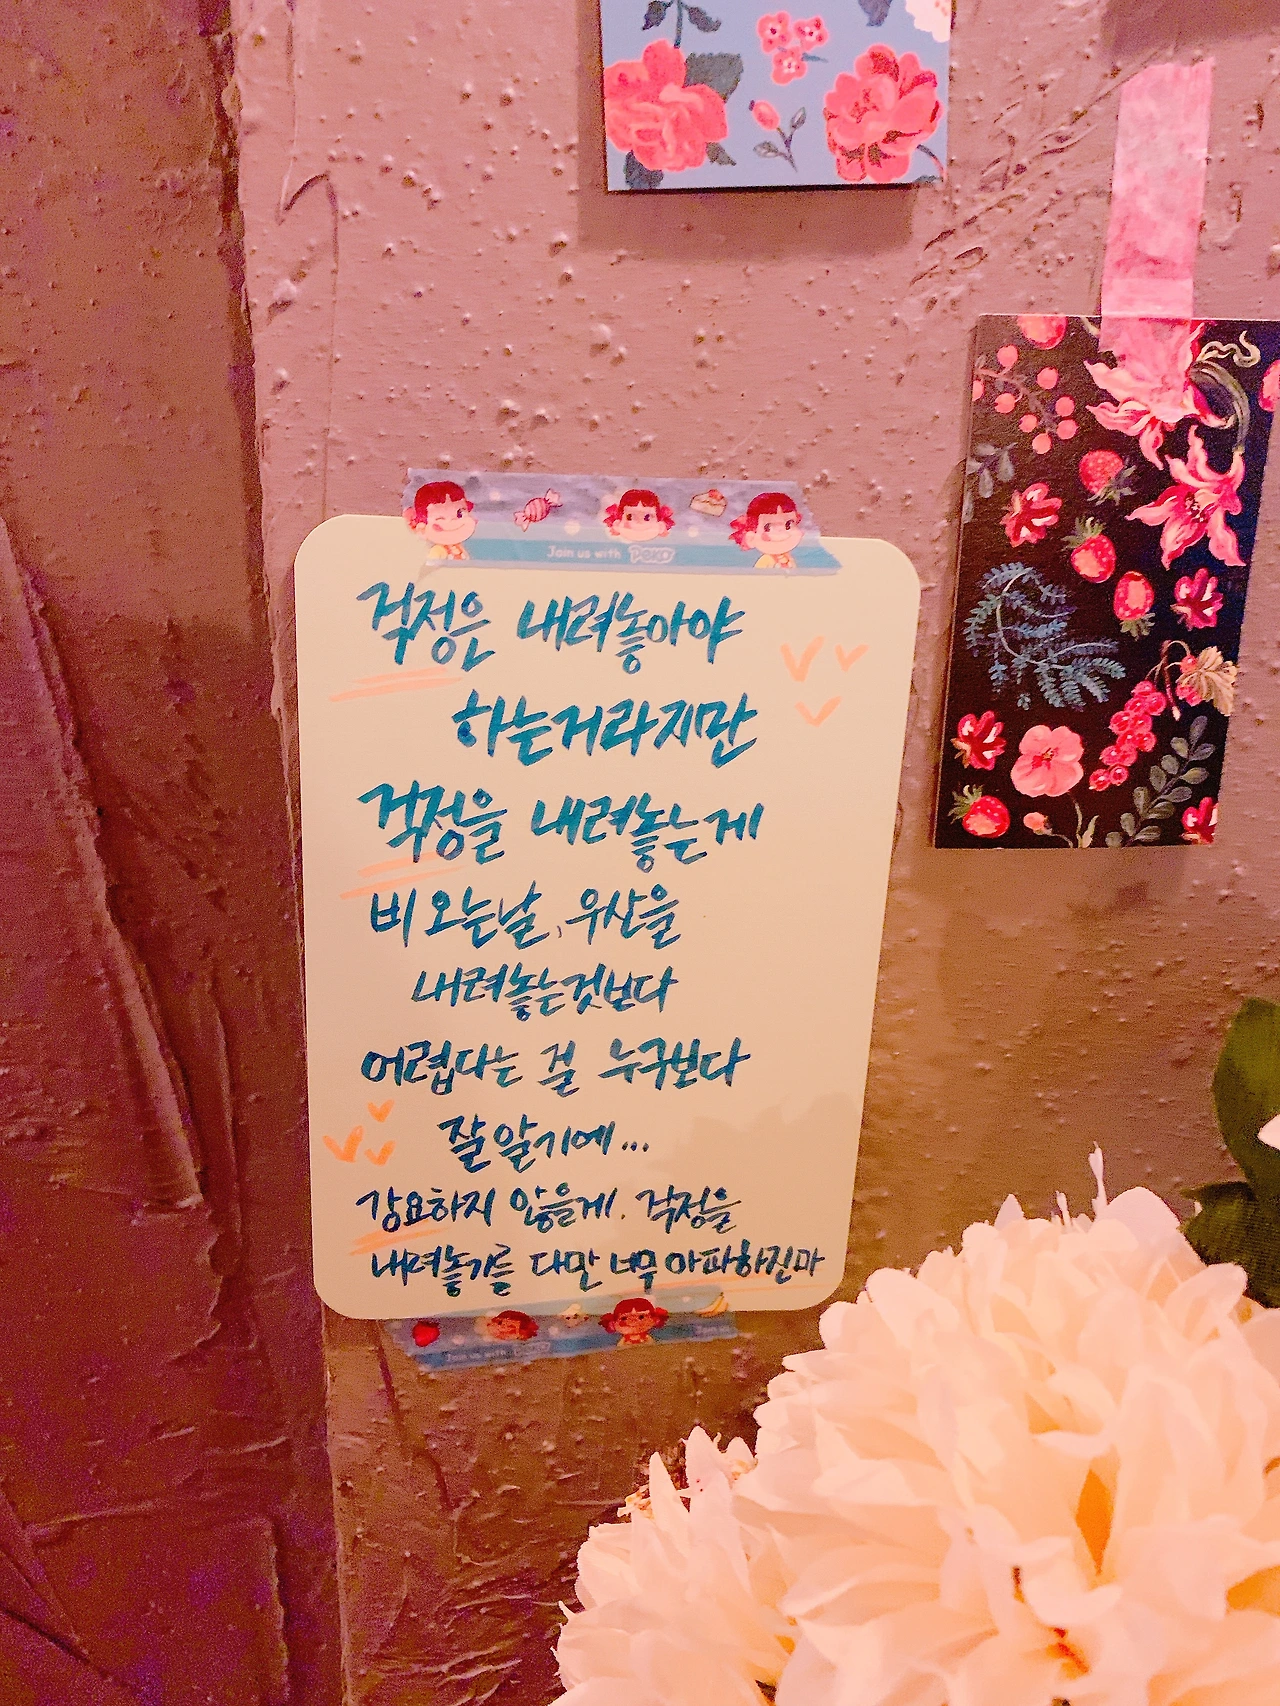 Join us with Peko
걱정은 내려놓아야
하는거라지만
걱정을 내려놓는게
비 오는날, 우산을
내려놓는것보다
어렵다는 걸 누구보다
잘 알기에...
강요하지 않을게. 걱정을
내려놓기를 다만 너무 아파하진마
Join us with Peko